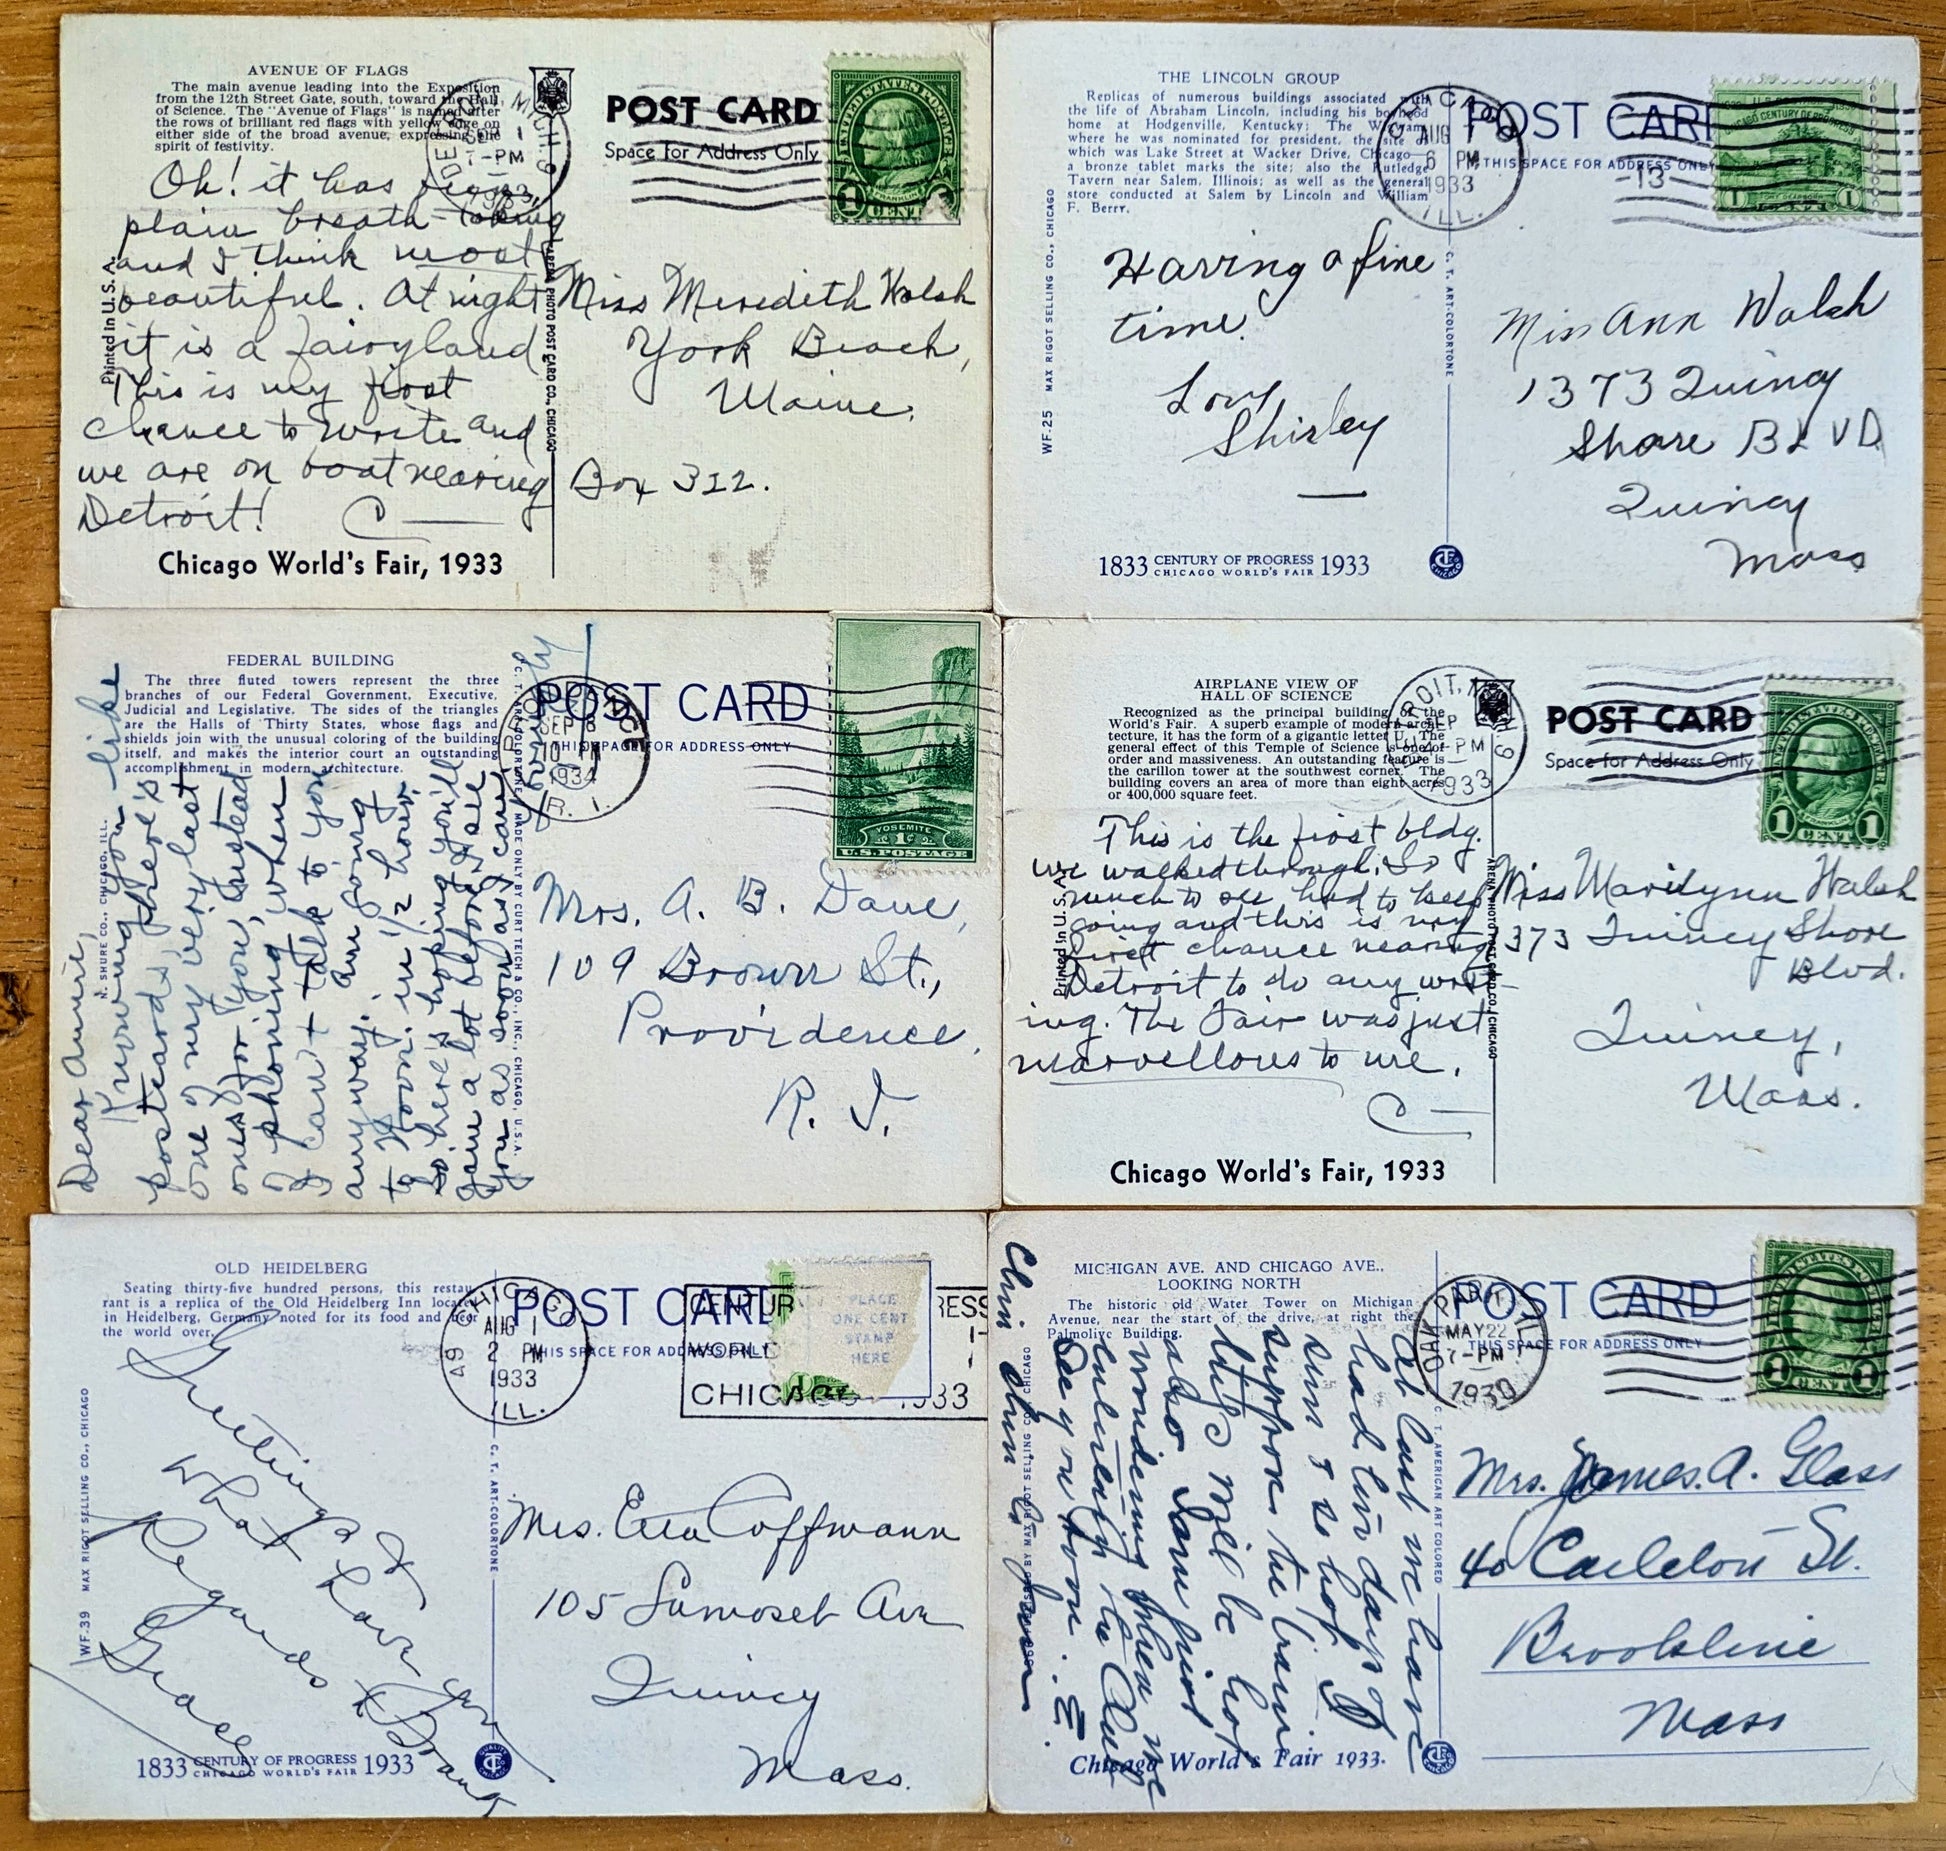 AVENUE OF FLAGS
The main avenue leading into the Exposition
from the 12th Street Gate, south, toward the Hall
of Science. The "Avenue of Flags" is named after
the rows of brilliant red flags with yellow edge on
either side of the broad avenue, expressing the
spirit of festivity.
Oh! it has
plain breath-taking
and I think most
beautiful. At night
it is a fairyland
This is my first
chance to write and
we are on boat nearing
Detroit! C
Chicago World's Fair, 1933
Printed in U.S.A.
ARENA PHOTO POST CARD CO., CHICAGO
MICH.
1
7-PM
1933
POST CARD
Space for Address Only
UNITED STATES POSTAGE
FRANKLIN
1 CENT
Miss Meredith Walsh
York Beach,
Maine.
Box 312.
THE LINCOLN GROUP
Replicas of numerous buildings associated with
the life of Abraham Lincoln, including his boyhood
home at Hodgenville, Kentucky; The Wigwam
where he was nominated for president, the site of
which was Lake Street at Wacker Drive, Chicago—
a bronze tablet marks the site; also the Rutledge
Tavern near Salem, Illinois; as well as the general
store conducted at Salem by Lincoln and William
F. Berry.
Having a fine
time.
Love
Shirley
WF-25 MAX RIGOT SELLING CO., CHICAGO
C. T. ART-COLORTONE
1833 CENTURY OF PROGRESS 1933
CHICAGO WORLD'S FAIR
CHICAGO
AUG
6 PM
1933
ILL.
POST CARD
THIS SPACE FOR ADDRESS ONLY
13
CHICAGO CENTURY OF PROGRESS
1 1
Miss Ann Walsh
1373 Quincy
Shore BLVD.
Quincy
Mass
FEDERAL BUILDING
The three fluted towers represent the three
branches of our Federal Government, Executive,
Judicial and Legislative. The sides of the triangles
are the Halls of Thirty States, whose flags and
shields join with the unusual coloring of the building
itself, and makes the interior court an outstanding
accomplishment in modern architecture.
Dear Annie,
Knowing you like
postcards, here's
one of my very last
ones for you, instead
of phoning when
I can't talk to you
anyway. Am going
to Noon. in 1/2 hour.
So here's hoping you'll
gain a lot before I see
you as soon as I can
N. SHURE CO., CHICAGO, ILL.
C. T. ART-COLORTONE MADE ONLY BY CURT TEICH & CO., INC., CHICAGO, U.S.A.
PROVIDENCE
SEP 8
10
1934
R. I.
POST CARD
THIS SPACE FOR ADDRESS ONLY
YOSEMITE
1c
U.S. POSTAGE
Mrs. A. B. Dave,
109 Brown St.,
Providence,
R. I.
AIRPLANE VIEW OF
HALL OF SCIENCE
Recognized as the principal building of the
World's Fair. A superb example of modern archi-
tecture, it has the form of a gigantic letter U. The
general effect of this Temple of Science is one of
order and massiveness. An outstanding feature is
the carillon tower at the southwest corner. The
building covers an area of more than eight acres
or 400,000 square feet.
This is the first bldg.
we walked through. So
much to see had to keep
going and this is my
first chance nearing
Detroit to do any writ-
ing. The Fair was just
marvellous to me.
C
Chicago World's Fair, 1933
Printed in U.S.A.
ARENA PHOTO POST CARD CO., CHICAGO
DETROIT, MICH.
SEP
-PM
1933
POST CARD
Space for Address Only
1 CENT 1
Miss Marilynn Walsh
1373 Quincy Shore
Blvd.
Quincy,
Mass.
OLD HEIDELBERG
Seating thirty-five hundred persons, this restau-
rant is a replica of the Old Heidelberg Inn located
in Heidelberg, Germany noted for its food and beer
the world over.
Greetings
What
Regards
Grace
WF-39 MAX RIGOT SELLING CO., CHICAGO
C. T. ART-COLORTONE
1833 CENTURY OF PROGRESS 1933
CHICAGO WORLD'S FAIR
CHICAGO
AUG 1
2 PM
1933
ILL.
49
POST CARD
THIS SPACE FOR ADDRESS ONLY
PLACE
ONE CENT
STAMP
HERE
Mrs. Etta Coffmann
105 Samoset Ave
Quincy
Mass.
MICHIGAN AVE. AND CHICAGO AVE.,
LOOKING NORTH
The historic old Water Tower on Michigan
Avenue, near the start of the drive, at right the
Palmolive Building.
At last we have
had two days of
sun & so hot. I
suppose the train
trip will be hot
also. I am just
wondering when we
MAX RIGOT SELLING CO., CHICAGO
C. T. AMERICAN ART COLORED
Chicago World's Fair 1933.
OAK PARK, ILL.
MAY 22
7-PM
POST CARD
THIS SPACE FOR ADDRESS ONLY
1 CENT 1
Mrs. James. A. Glass
40 Carleton St.
Brookline
Mass